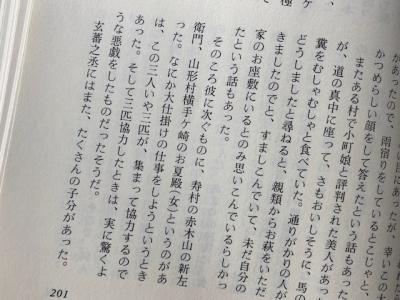 があったので、雨宿りをしているとこじゃと、
かつめらしい顔をして答えたという話もあった
またある村で小町娘と評判された美人があっ
が、道の真中に座って、さもおいしそうに、馬の
糞をむしゃむしゃと食べていた。通りがかりの人が
どうしましたと尋ねると、親類からお萩をいただ
きましたのでと、すましこんでいて、未だ自分の
家のお座敷にいるとのみ思いこんでいるらしかっ
たという話もあった。
そのころ彼に次ぐものに、寿村の赤木山の新左
衛門、山形村横手ヶ崎のお夏殿(女)というのがあ
った。なにか大仕掛けの仕事をしようというとき
は、この三人いや三匹が、集まって協力するので
あった。そして三匹協力したときは、実に驚くよ
うな悪戯をしたものだったそうだ。
玄蕃之丞にはまた、たくさんの子分があった。
201